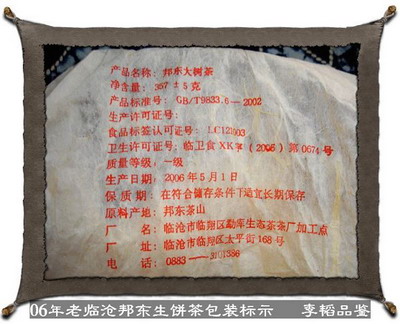 产品名称: 邦东大树茶
净含量: 357±5克
产品标准号: GB/T9833.6-2002
生产许可证号:
食品标签认可证号: LC121003
卫生许可证号: 临卫食XK字(2006)第0674号
质量等级: 一级
生产日期: 2006年5月1日
保质期: 在符合储存条件下适宜长期保存
原料产地: 邦东茶山
厂名: 临沧市临翔区勐库生态茶茶厂加工点
厂址: 临沧市临翔区太平街168号
电话: 0883-
06年老临沧邦东生饼茶包装标示 李韬品鉴